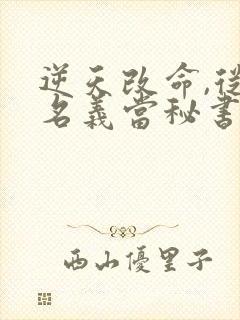 逆天改命,從
名義當秘書
西山優里子